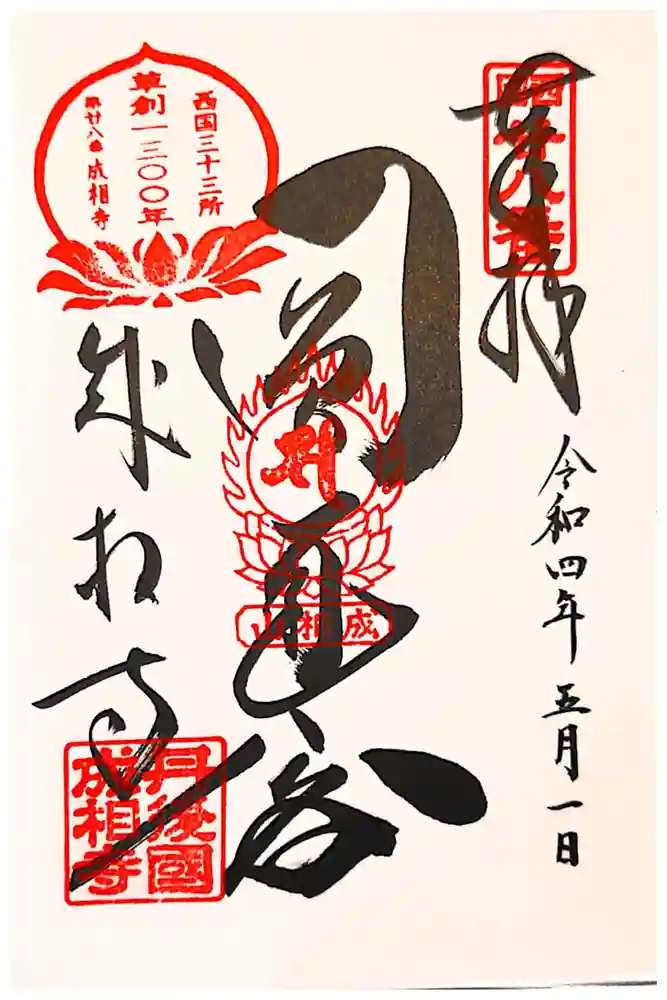 奉拝
西國廿八番
令和四年五月一日
成相山
西国三十三所
草創一三〇〇年
第廿八番 成相寺
成相寺
丹後國
成相寺